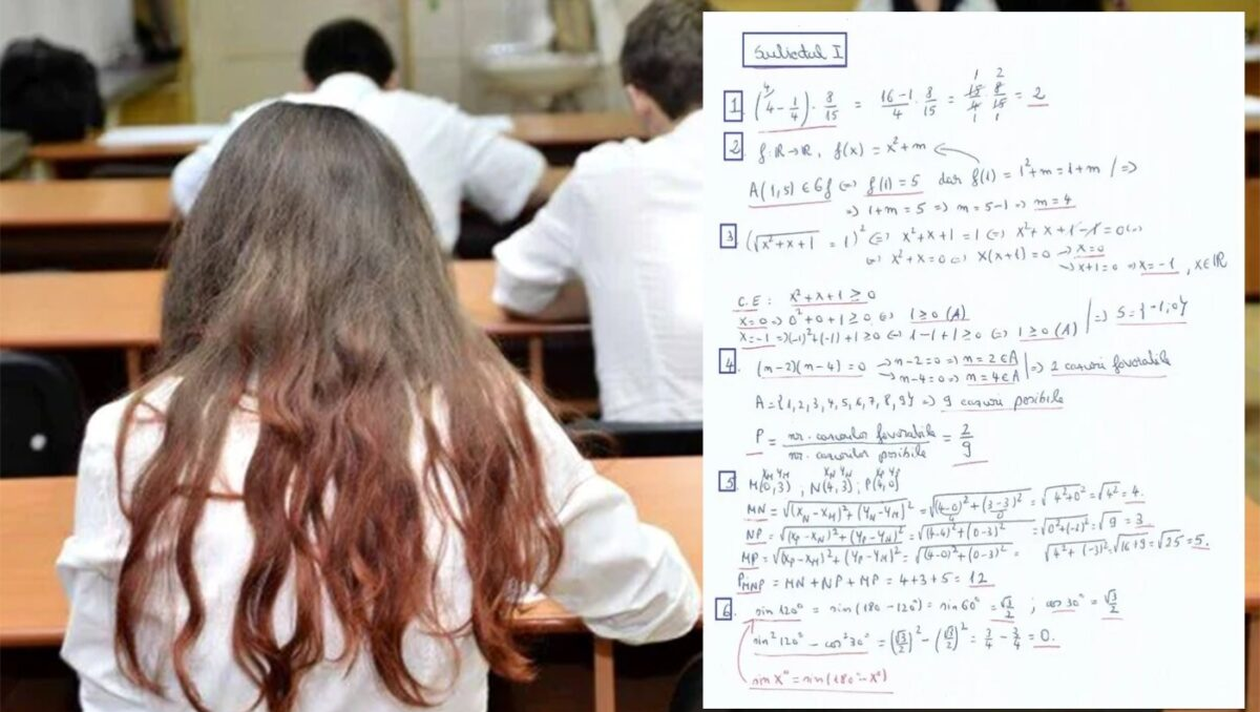 Subiectul I
1. (4 - 1/4) · 8/15 = (16-1)/4 · 8/15 = 15/4 · 8/15 = 2
2. f: ℝ→ℝ, f(x) = x² + m
A(1,5) ∈ Gf ⇔ f(1) = 5 dar f(1) = 1² + m = 1 + m / ⇒
⇒ 1 + m = 5 ⇒ m = 5-1 ⇒ m = 4
3. (√(x²+x+1) = 1)² ⇔ x²+x+1 = 1 ⇔ x²+x+1-1 = 0 ⇔
⇔ x²+x = 0 ⇔ x(x+1) = 0 → x = 0
→ x+1 = 0 ⇒ x = -1, x ∈ ℝ
C.E: x²+x+1 ≥ 0
x = 0 ⇒ 0²+0+1 ≥ 0 ⇔ 1 ≥ 0 (A)
x = -1 ⇒ (-1)²+(-1)+1 ≥ 0 ⇔ 1-1+1 ≥ 0 ⇔ 1 ≥ 0 (A) | ⇒ S = {-1; 0}
4. (n-2)(n-4) = 0 → n-2 = 0 ⇒ n = 2 ∈ A
→ n-4 = 0 ⇒ n = 4 ∈ A | ⇒ 2 cazuri favorabile
A = {1,2,3,4,5,6,7,8,9} ⇒ 9 cazuri posibile
P = nr. cazurilor favorabile / nr. cazurilor posibile = 2/9
5. xM yM xN yN xP yP
M(0,3), N(4,3); P(4,0)
MN = √((xN-xM)²+(yN-yM)²) = √((4-0)²+(3-3)²) = √(4²+0²) = √4² = 4.
NP = √((xP-xN)²+(yP-yN)²) = √((4-4)²+(0-3)²) = √(0²+(-3)²) = √9 = 3
MP = √((xP-xM)²+(yP-yM)²) = √((4-0)²+(0-3)²) = √(4²+(-3)²) = √(16+9) = √25 = 5.
PMNP = MN + NP + MP = 4+3+5 = 12
6. sin 120° = sin(180-120°) = sin 60° = √3/2 ; cos 30° = √3/2
sin² 120° - cos² 30° = (√3/2)² - (√3/2)² = 3/4 - 3/4 = 0.
sin x° = sin(180°-x°)